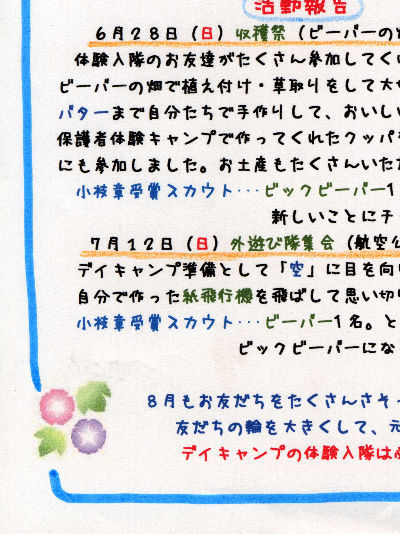 活動報告
6月28日（日）収穫祭（ビーバーの
体験入隊のお友達がたくさん参加してく
ビーバーの畑で植え付け・草取りをして大
バターまで自分たちで手作りして、おいし
保護者体験キャンプで作ってくれたクッパ
にも参加しました。お土産もたくさんいた
小枝章受賞スカウト･･･ビックビーバー1
新しいことにチ
7月12日（日）外遊び隊集会（航空
デイキャンプ準備として「空」に目を向
自分で作った紙飛行機を飛ばして思い切
小枝章受賞スカウト･･･ビーバー1名。と
ビックビーバーにな
8月もお友だちをたくさんさそっ
友だちの輪を大きくして、元
デイキャンプの体験入隊は